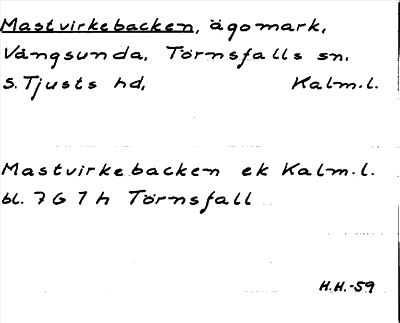 Mastvirkebacken, ägomark,
Vångsunda, Törnsfalls sn.
S. Tjusts hd, Kalm. l.
Mastvirkebacken ek Kalm. l.
bl. 7 G 7 h Törnsfall
H.H.-59